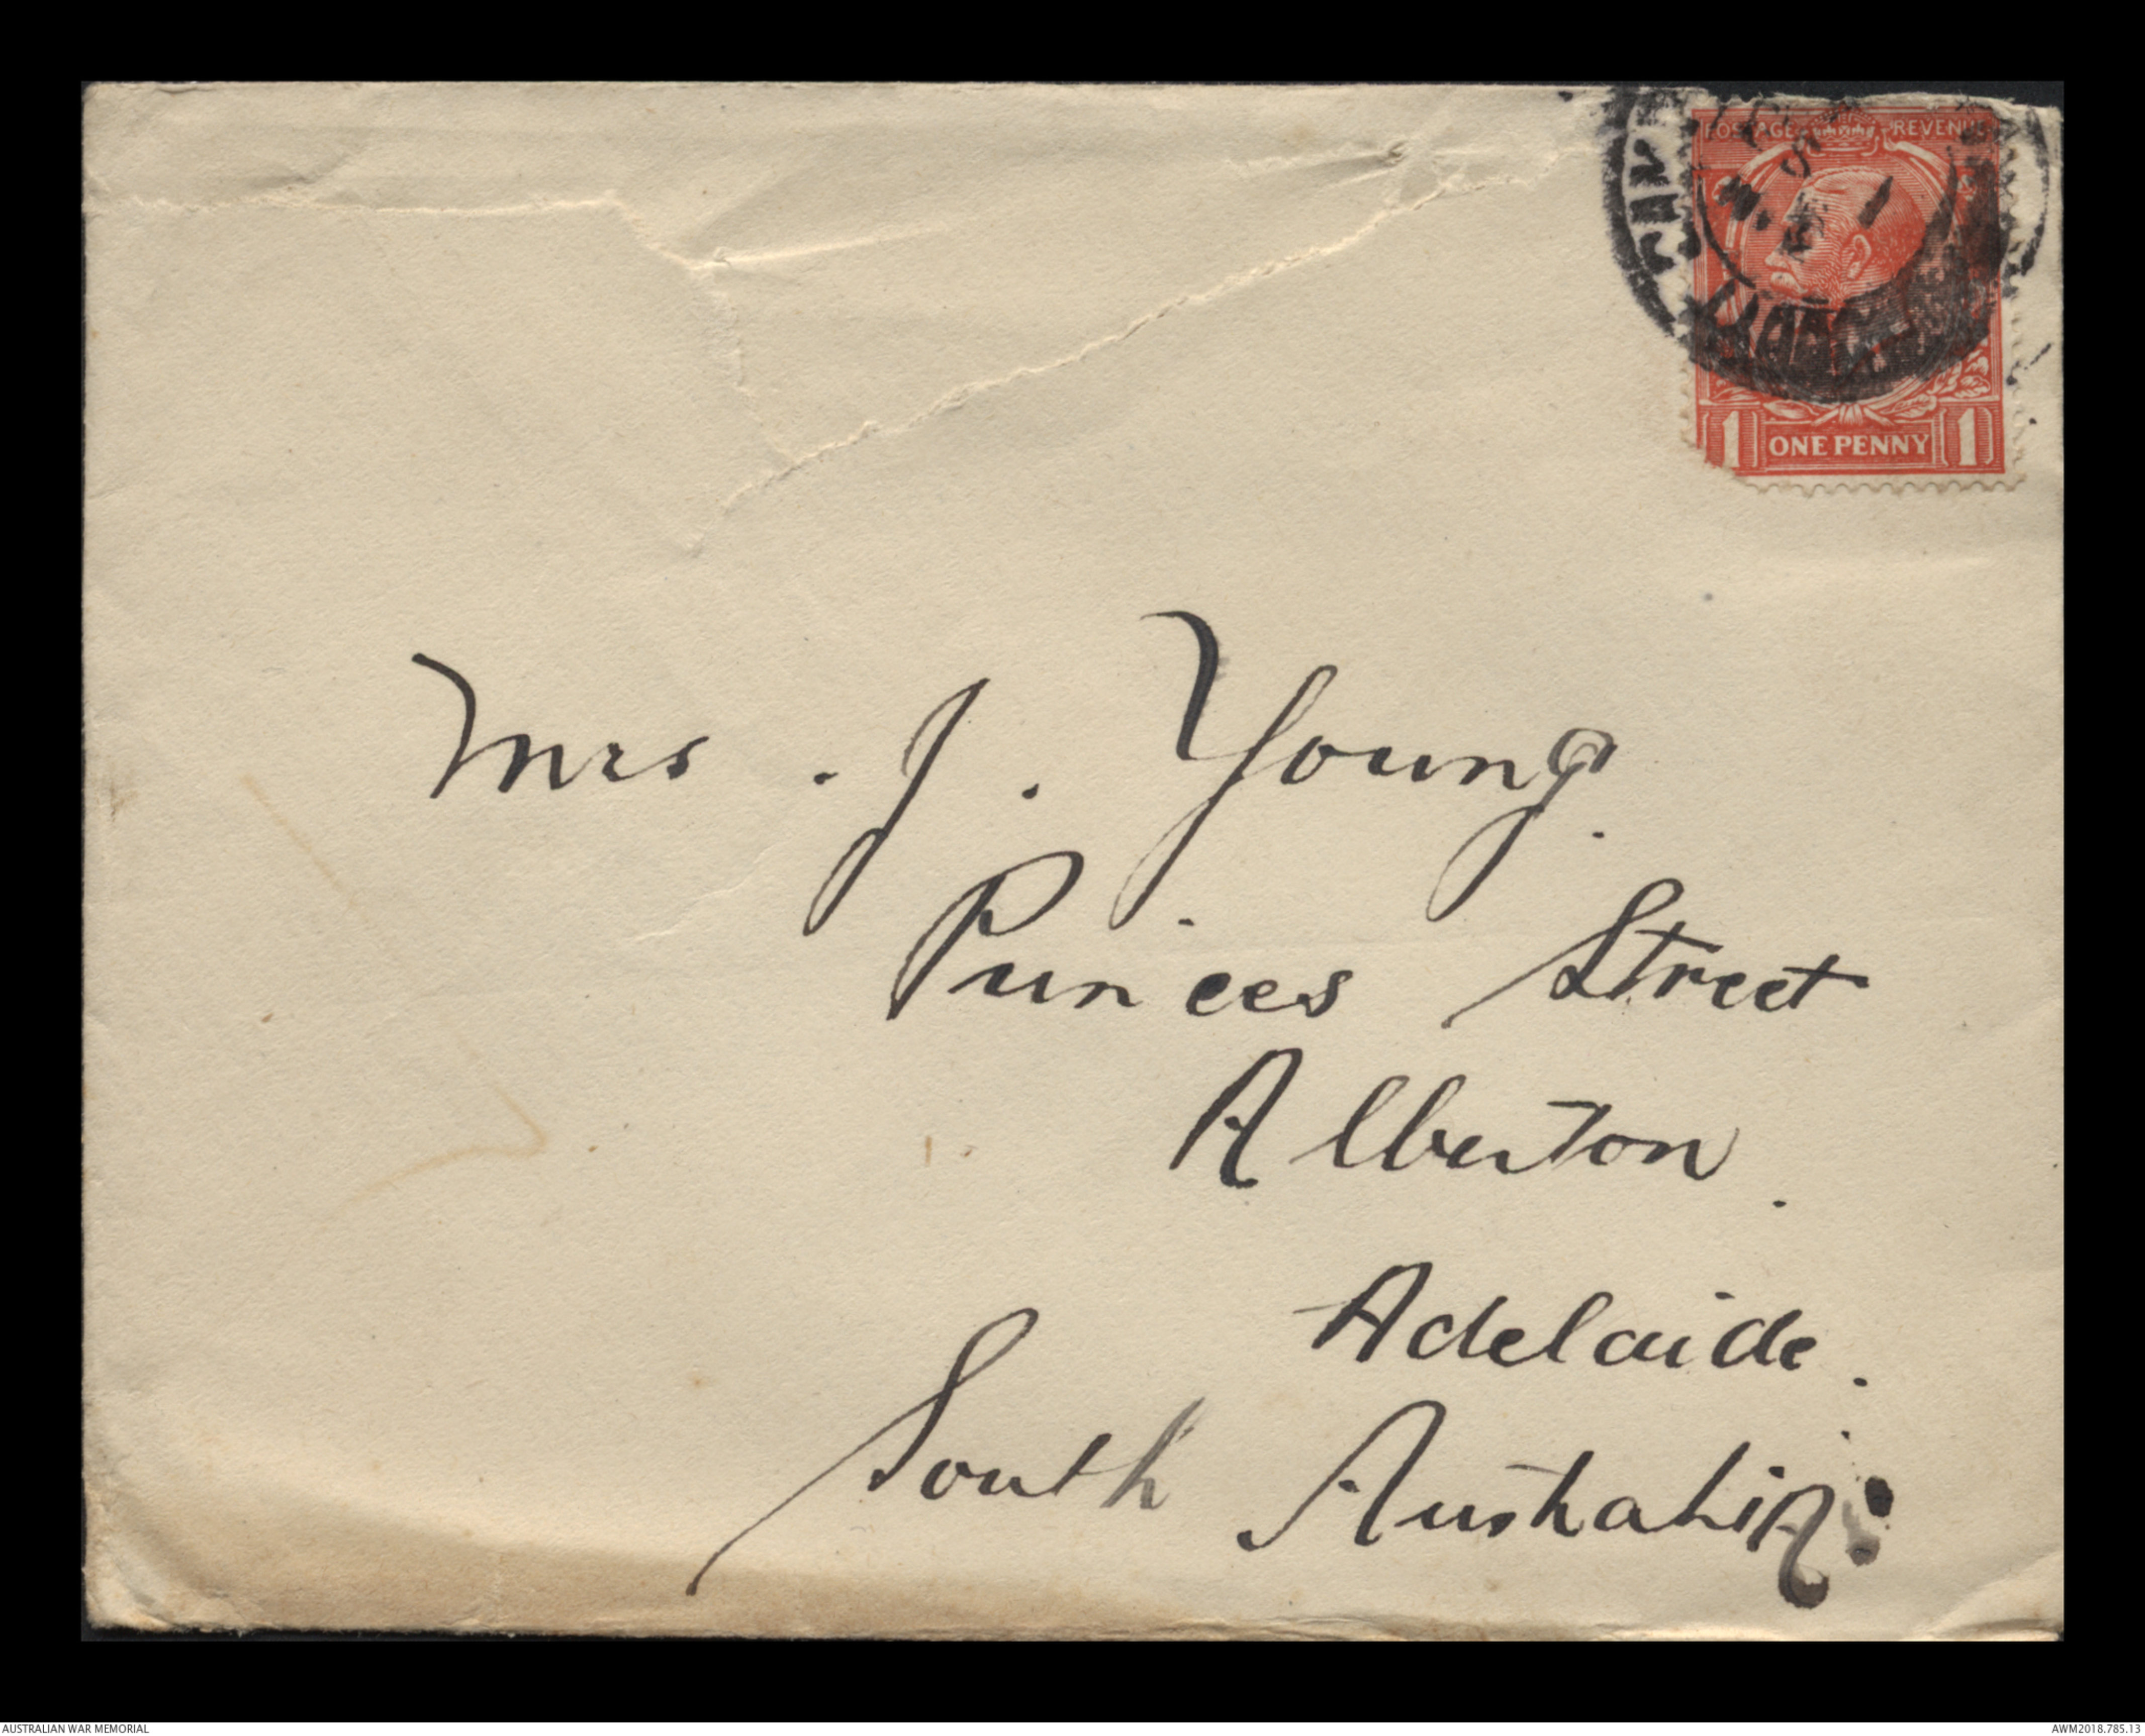 POSTAGE REVENUE
1 ONE PENNY 1
Mrs . J . Young.
Princes Street
Alberton.
Adelaide.
South Australia.
AUSTRALIAN WAR MEMORIAL
AWM2018.785.13